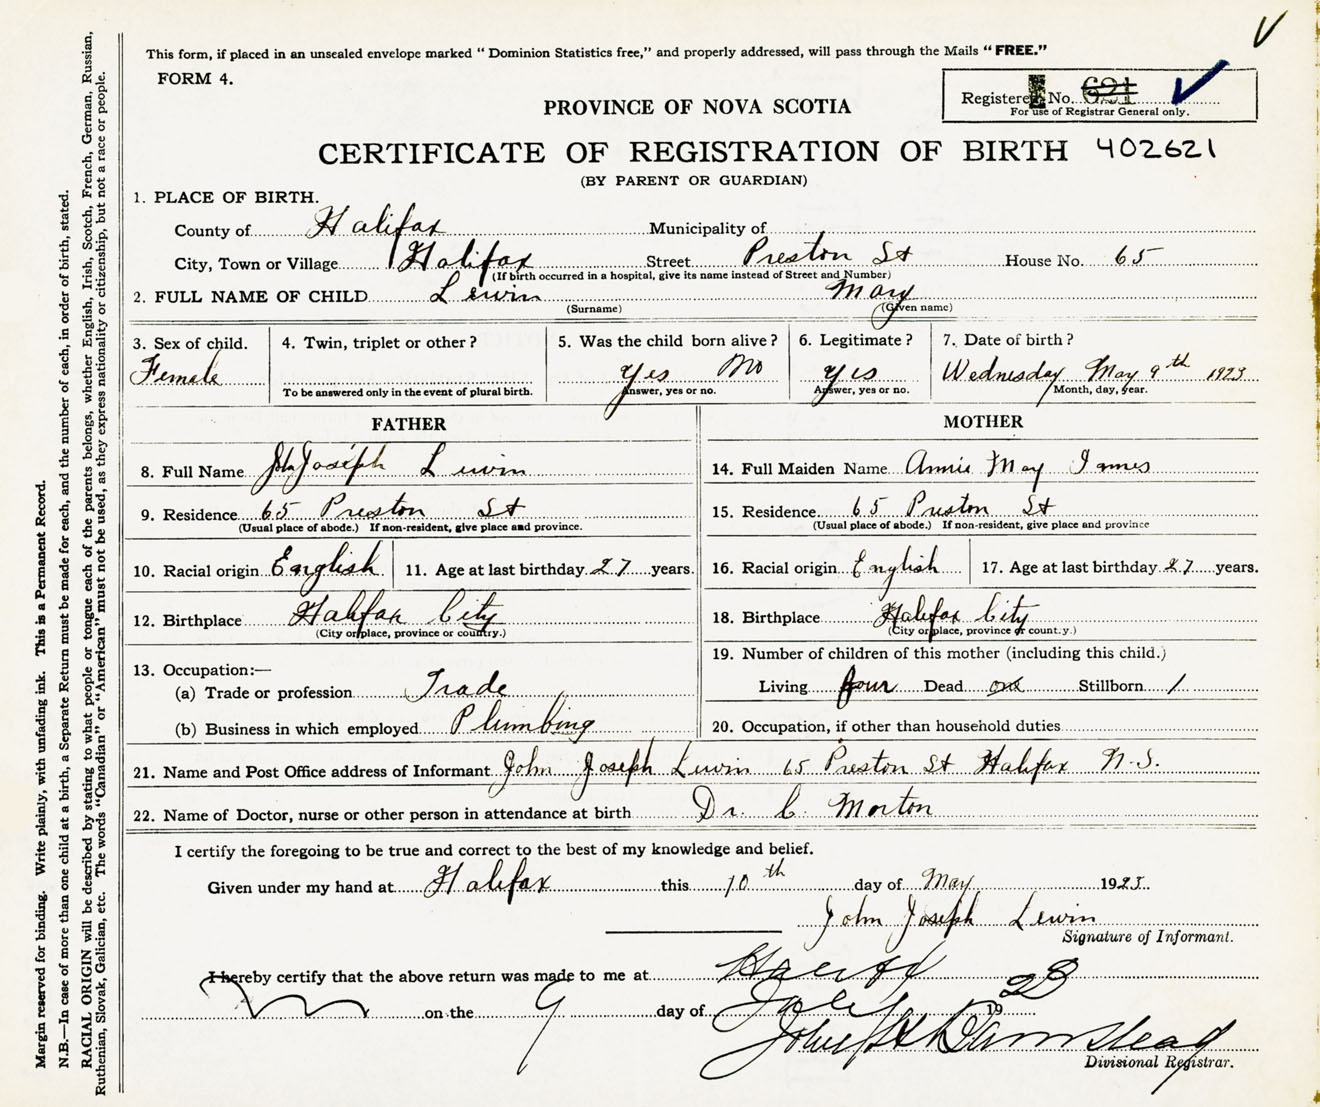 This form, if placed in an unsealed envelope marked “ Dominion Statistics free,” and properly addressed, will pass through the Mails “ FREE.”
FORM 4.
Registered No. 621
For use of Registrar General only.
PROVINCE OF NOVA SCOTIA
CERTIFICATE OF REGISTRATION OF BIRTH 402621
(BY PARENT OR GUARDIAN)
1. PLACE OF BIRTH.
County of Halifax Municipality of
City, Town or Village Halifax Street Preston St House No. 65
(If birth occurred in a hospital, give its name instead of Street and Number)
2. FULL NAME OF CHILD Lewin Mary
(Surname) (Given name)
3. Sex of child. Female
4. Twin, triplet or other ?
To be answered only in the event of plural birth.
5. Was the child born alive ?
Yes No
Answer, yes or no.
6. Legitimate ?
yes
Answer, yes or no.
7. Date of birth ?
Wednesday May 9th 1923
Month, day, year.
FATHER
8. Full Name Joseph Lewin
9. Residence 65 Preston St
(Usual place of abode.) If non-resident, give place and province.
10. Racial origin English 11. Age at last birthday 27 years.
12. Birthplace Halifax City
(City or place, province or country.)
13. Occupation:—
(a) Trade or profession Trade
(b) Business in which employed Plumbing
MOTHER
14. Full Maiden Name Annie May Innes
15. Residence 65 Preston St
(Usual place of abode.) If non-resident, give place and province
16. Racial origin English 17. Age at last birthday 27 years.
18. Birthplace Halifax City
(City or place, province or country.)
19. Number of children of this mother (including this child.)
Living four Dead one Stillborn 1
20. Occupation, if other than household duties
21. Name and Post Office address of Informant John Joseph Lewin 65 Preston St Halifax N.S.
22. Name of Doctor, nurse or other person in attendance at birth Dr. C. Morton
I certify the foregoing to be true and correct to the best of my knowledge and belief.
Given under my hand at Halifax this 10th day of May 1923.
John Joseph Lewin
Signature of Informant.
I hereby certify that the above return was made to me at Halifax
on the 9 day of July 1923
Divisional Registrar.
Margin reserved for binding. Write plainly, with unfading ink. This is a Permanent Record.
N.B.—In case of more than one child at a birth, a Separate Return must be made for each, and the number of each, in order of birth, stated.
RACIAL ORIGIN will be described by stating to what people or tongue each of the parents belongs, whether English, Irish, Scotch, French, German, Russian,
Ruthenian, Slovak, Galician, etc. The words “Canadian” or “American” must not be used, as they express nationality or citizenship, but not a race or people.